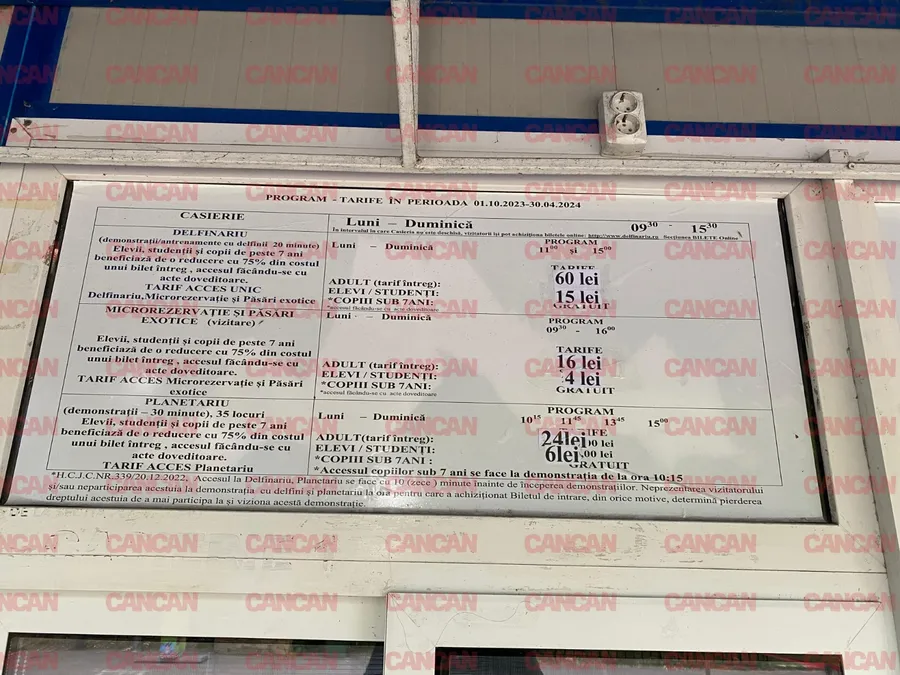 PROGRAM - TARIFE ÎN PERIOADA 01.10.2023-30.04.2024
CASIERIE
Luni – Duminică 09³⁰ - 15³⁰
În intervalul în care Casieria nu este deschisă, vizitatorii își pot achiziționa biletele online: http://www.delfinariu.ro Secțiunea BILETE Online
DELFINARIU
(demonstrații/antrenamente cu delfinii 20 minute)
Elevii, studenții și copii de peste 7 ani
beneficiază de o reducere cu 75% din costul
unui bilet întreg , accesul făcându-se cu
acte doveditoare.
TARIF ACCES UNIC
Delfinariu,Microrezervație și Păsări exotice
Luni – Duminică
PROGRAM
11⁰⁰ și 15⁰⁰
TARIFE
ADULT (tarif întreg): 60 lei
ELEVI / STUDENȚI: 15 lei
*COPIII SUB 7ANI: GRATUIT
*accesul făcându-se cu acte doveditoare
MICROREZERVAȚIE ȘI PĂSĂRI
EXOTICE (vizitare)
Elevii, studenții și copii de peste 7 ani
beneficiază de o reducere cu 75% din costul
unui bilet întreg , accesul făcându-se cu
acte doveditoare.
TARIF ACCES Microrezervație și Păsări
exotice
Luni – Duminică
PROGRAM
09³⁰ - 16⁰⁰
TARIFE
ADULT (tarif întreg): 16 lei
ELEVI / STUDENȚI: 4 lei
*COPIII SUB 7ANI: GRATUIT
*accesul făcându-se cu acte doveditoare
PLANETARIU
(demonstrații – 30 minute), 35 locuri
Elevii, studenții și copii de peste 7 ani
beneficiază de o reducere cu 75% din costul
unui bilet întreg , accesul făcându-se cu
acte doveditoare.
TARIF ACCES Planetariu
Luni – Duminică
PROGRAM
10¹⁵ 11⁴⁵ 13⁴⁵ 15⁰⁰
ADULT(tarif întreg): 24lei
ELEVI / STUDENȚI : 6lei
*COPIII SUB 7ANI : GRATUIT
*Accesul copiilor sub 7 ani se face la demonstrația de la ora 10:15
*H.C.J.C.NR.339/20.12.2022. Accesul la Delfinariu, Planetariu se face cu 10 (zece ) minute înainte de începerea demonstrațiilor. Neprezentarea vizitatorului
și/sau neparticiparea acestuia la demonstrația cu delfini și planetariu la ora pentru care a achiziționat Biletul de intrare, din orice motive, determină pierderea
dreptului acestuia de a mai participa la și viziona această demonstrație.
CANCAN